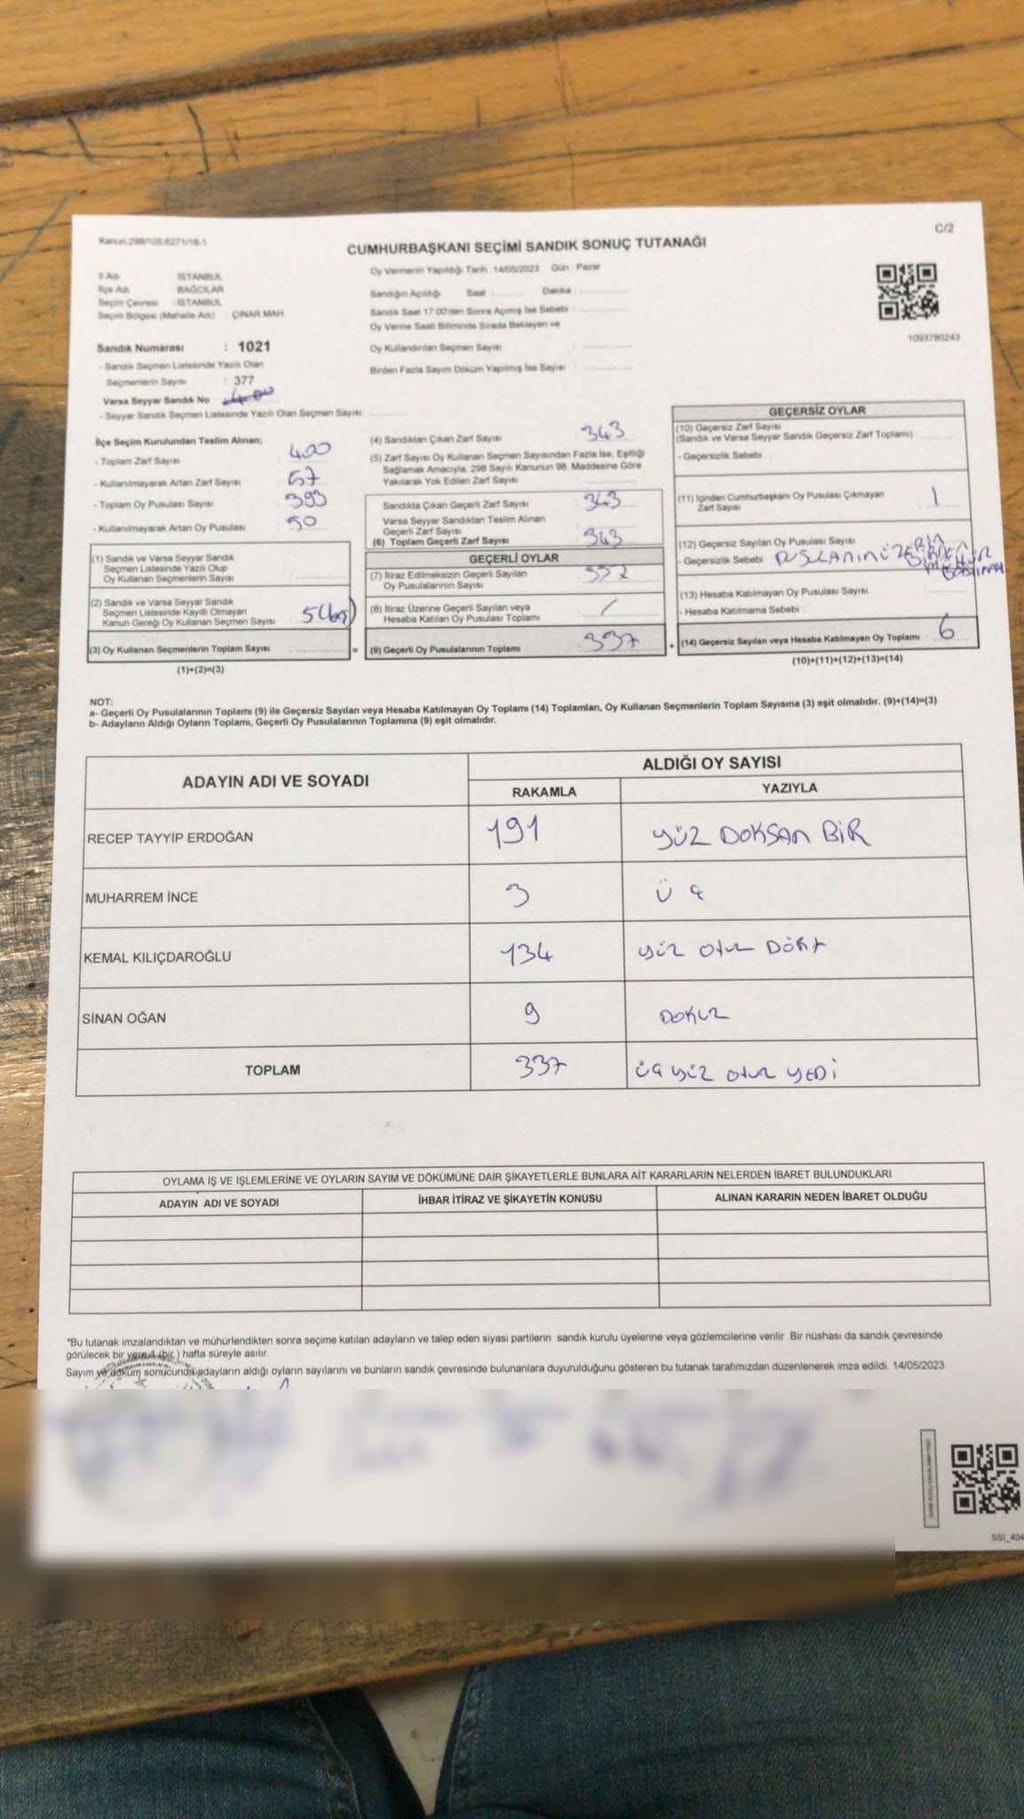 Kanun:298/105,6271/18-1
C/2
CUMHURBAŞKANI SEÇİMİ SANDIK SONUÇ TUTANAĞI
İl Adı : İSTANBUL
İlçe Adı : BAĞCILAR
Seçim Çevresi : İSTANBUL
Seçim Bölgesi (Mahalle Adı) : ÇINAR MAH.
Sandık Numarası : 1021
- Sandık Seçmen Listesinde Yazılı Olan
Seçmenlerin Sayısı : 377
Varsa Seyyar Sandık No
- Seyyar Sandık Seçmen Listesinde Yazılı Olan Seçmen Sayısı
Oy Vermenin Yapıldığı Tarih : 14/05/2023 Gün : Pazar
Sandığın Açıldığı Saat Dakika
Sandık Saat 17:00'den Sonra Açılmış İse Sebebi
Oy Verme Saati Bitiminde Sırada Bekleyen ve
Oy Kullandırılan Seçmen Sayısı
Birden Fazla Sayım Döküm Yapılmış İse Sayısı
1093780243
İlçe Seçim Kurulundan Teslim Alınan;
- Toplam Zarf Sayısı 400
- Kullanılmayarak Artan Zarf Sayısı 57
- Toplam Oy Pusulası Sayısı 393
- Kullanılmayarak Artan Oy Pusulası 50
(1) Sandık ve Varsa Seyyar Sandık
Seçmen Listesinde Yazılı Olup
Oy Kullanan Seçmenlerin Sayısı
(2) Sandık ve Varsa Seyyar Sandık
Seçmen Listesinde Kayıtlı Olmayan
Kanun Gereği Oy Kullanan Seçmen Sayısı 5 (beş)
(3) Oy Kullanan Seçmenlerin Toplam Sayısı
(1)+(2)=(3)
(4) Sandıktan Çıkan Zarf Sayısı 343
(5) Zarf Sayısı Oy Kullanan Seçmen Sayısından Fazla İse, Eşitliği
Sağlamak Amacıyla, 298 Sayılı Kanunun 98. Maddesine Göre
Yakılarak Yok Edilen Zarf Sayısı
Sandıkta Çıkan Geçerli Zarf Sayısı 343
Varsa Seyyar Sandıktan Teslim Alınan
Geçerli Zarf Sayısı
(6) Toplam Geçerli Zarf Sayısı 343
GEÇERLİ OYLAR
(7) İtiraz Edilmeksizin Geçerli Sayılan
Oy Pusulalarının Sayısı
(8) İtiraz Üzerine Geçerli Sayılan veya
Hesaba Katılan Oy Pusulası Toplamı /
= (9) Geçerli Oy Pusulalarının Toplamı 337
GEÇERSİZ OYLAR
(10) Geçersiz Zarf Sayısı
(Sandık ve Varsa Seyyar Sandık Geçersiz Zarf Toplamı)
- Geçersizlik Sebebi
(11) İçinden Cumhurbaşkanı Oy Pusulası Çıkmayan
Zarf Sayısı 1
(12) Geçersiz Sayılan Oy Pusulası Sayısı
- Geçersizlik Sebebi
(13) Hesaba Katılmayan Oy Pusulası Sayısı
- Hesaba Katılmama Sebebi
+ (14) Geçersiz Sayılan veya Hesaba Katılmayan Oy Toplamı 6
(10)+(11)+(12)+(13)=(14)
NOT:
a- Geçerli Oy Pusulalarının Toplamı (9) ile Geçersiz Sayılan veya Hesaba Katılmayan Oy Toplamı (14) Toplamları, Oy Kullanan Seçmenlerin Toplam Sayısına (3) eşit olmalıdır. (9)+(14)=(3)
b- Adayların Aldığı Oyların Toplamı, Geçerli Oy Pusulalarının Toplamına (9) eşit olmalıdır.
ADAYIN ADI VE SOYADI
ALDIĞI OY SAYISI
RAKAMLA YAZIYLA
RECEP TAYYİP ERDOĞAN 191 YÜZ DOKSAN BİR
MUHARREM İNCE 3 Üç
KEMAL KILIÇDAROĞLU 134 yüz otuz DÖRT
SİNAN OĞAN 9 DOKUZ
TOPLAM 337 üçyüz otuz YEDİ
OYLAMA İŞ VE İŞLEMLERİNE VE OYLARIN SAYIM VE DÖKÜMÜNE DAİR ŞİKAYETLERLE BUNLARA AİT KARARLARIN NELERDEN İBARET BULUNDUKLARI
ADAYIN ADI VE SOYADI İHBAR İTİRAZ VE ŞİKAYETİN KONUSU ALINAN KARARIN NEDEN İBARET OLDUĞU
"Bu tutanak imzalandıktan ve mühürlendikten sonra seçime katılan adayların ve talep eden siyasi partilerin sandık kurulu üyelerine veya gözlemcilerine verilir. Bir nüshası da sandık çevresinde
görülecek bir yere 1 (bir) hafta süreyle asılır.
Sayım ve döküm sonucunda adayların aldığı oyların sayılarını ve bunların sandık çevresinde bulunanlara duyurulduğunu gösteren bu tutanak tarafımızdan düzenlenerek imza edildi. 14/05/2023